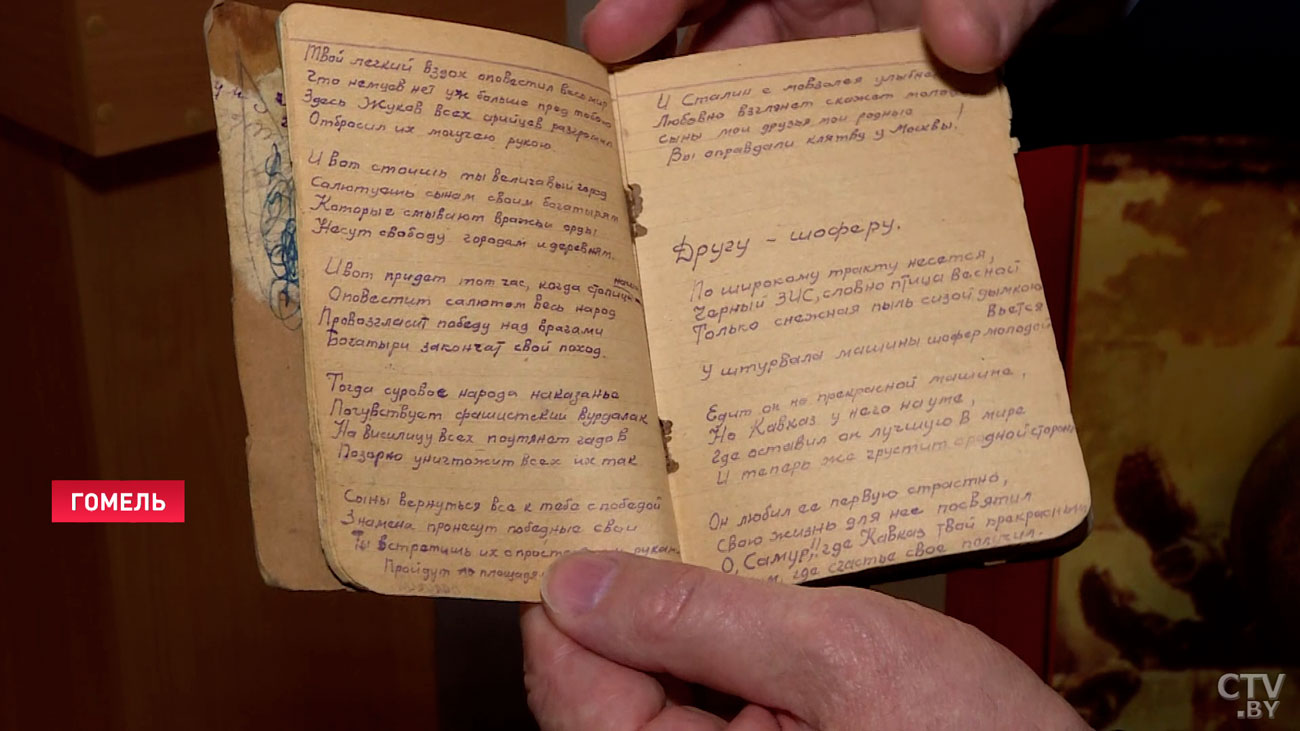 Твой легкий вздох оповестил весь мир
Что немцев нет уж больше пред тобою
Здесь Жуков всех арийцев разгромил
Отбросил их могучею рукою.
И вот стоишь ты величавый город
Салютуешь сынам своим богатырям
Которые смывают вражьи орды
Несут свободу городам и деревням.
И вот придет тот час, когда столица наша
Оповестит салютом весь народ
Провозгласит победу над врагами
Богатыри закончат свой поход.
Тогда суровое народа наказанье
Почувствует фашистский вурдалак
На висилицу всех потянет гадов
Позорно уничтожит всех их так
Сыны вернуться все к тебе с победой
Знамена пронесут победные свои
Ты встретишь их с рукам
Пройдут по площадям
И Сталин с мовзолея
Любовно взглянет скажет
сыны мои друзья мои родные
Вы оправдали клятву у Москвы!
Другу - шоферу.
По широкому тракту несется,
Черный ЗИС, словно птица весной
Только снежная пыль сизой дымкою
Вьется
У штурвала машины шофер молодой
Едит он на прекрасной машине,
На Кавказ у него на уме,
Где оставил он лучшую в мире
И теперь же грустит о родной стороне
Он любил ее первую страстно,
Свою жизнь для нее посвятил
О, Самур!! где Кавказ твой прекрасный
где счастье свое получил.
ГОМЕЛЬ
CTV
.BY